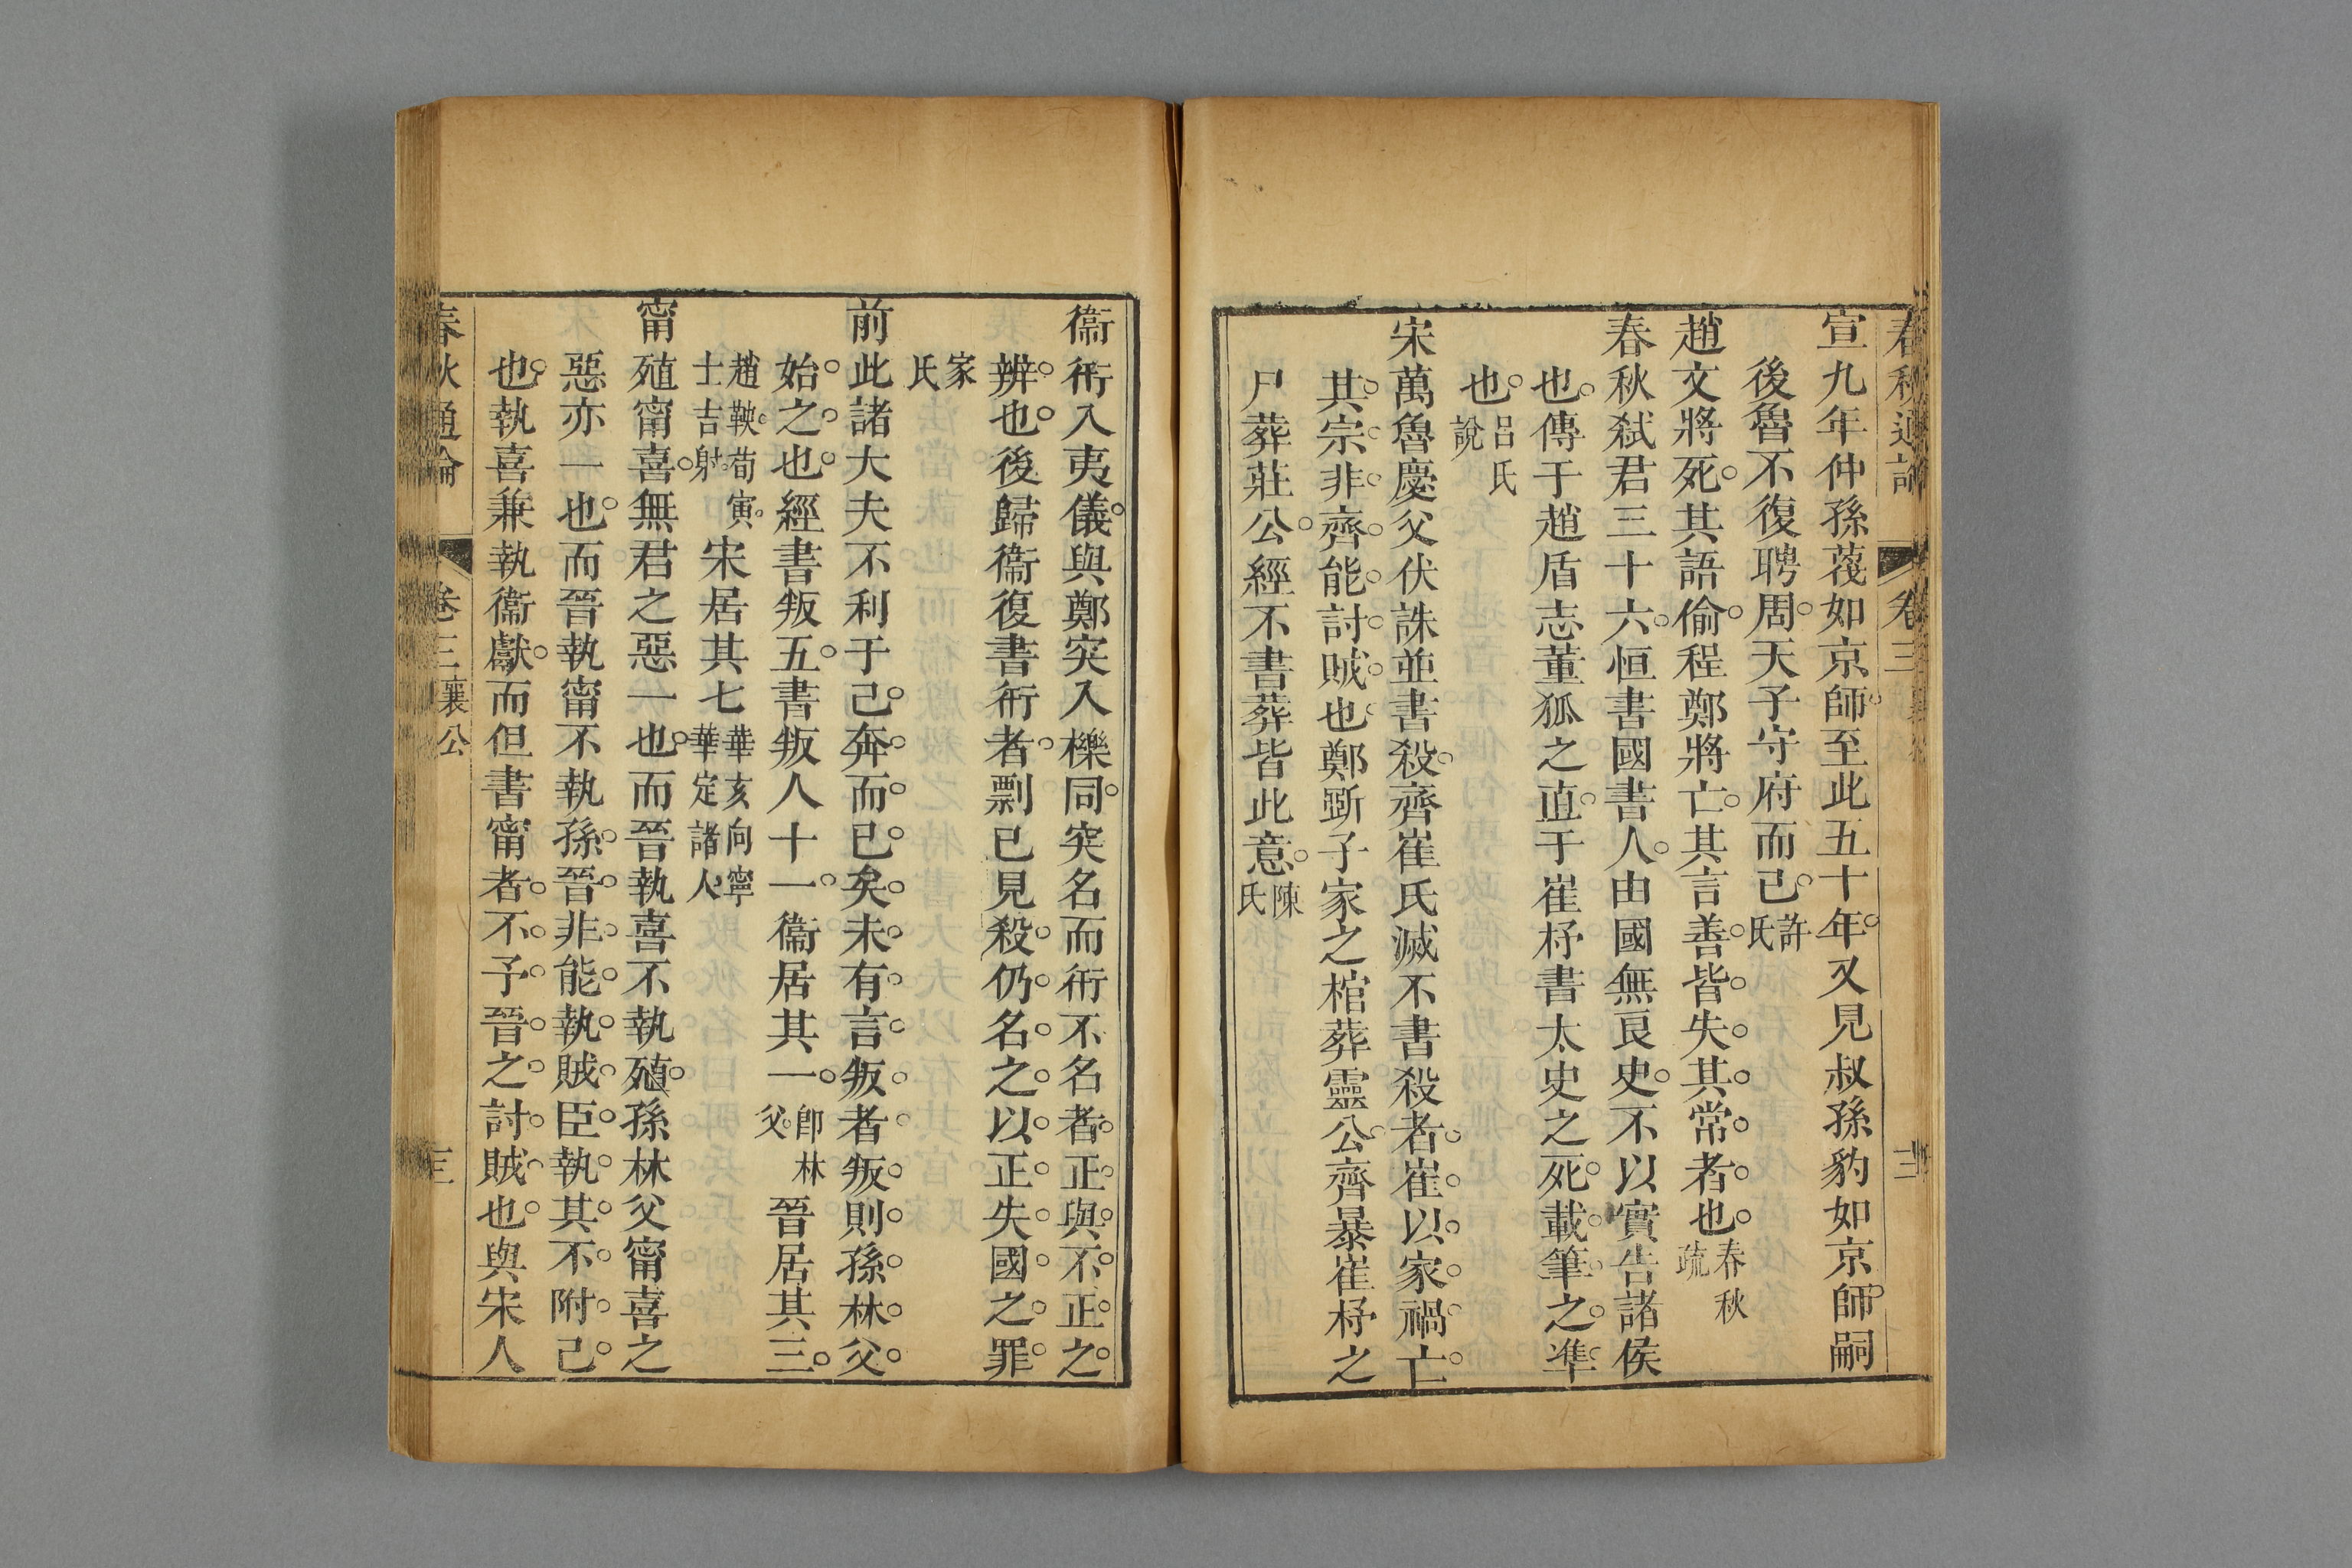 春秋通論 卷三 襄公 三
宣九年仲孫蔑如京師至此五十年又見叔孫豹如京師嗣
後魯不復聘周天子守府而已許氏
趙文將死其語偷程鄭將亡其言善皆失其常者也春秋疏
春秋弑君三十六恒書國書人由國無良史不以實告諸侯
也傳于趙盾志董狐之直于崔杼書太史之死載筆之凖
也呂氏說
宋萬魯慶父伏誅並書殺齊崔氏滅不書殺者崔以家禍亡
其宗非齊能討賊也鄭斲子家之棺葬靈公齊暴崔杼之
尸葬莊公經不書葬皆此意陳氏
衞衎入夷儀與鄭突入櫟同突名而衎不名者正與不正之
辨也後歸衞復書衎者剽已見殺仍名之以正失國之罪
家氏
前此諸大夫不利于己奔而已矣未有言叛者叛則孫林父
始之也經書叛五書叛人十一衞居其一卽林父晉居其三
趙鞅荀寅士吉射宋居其七華亥向寧華定諸人
甯殖甯喜無君之惡一也而晉執喜不執殖孫林父甯喜之
惡亦一也而晉執甯不執孫晉非能執賊臣執其不附己
也執喜兼執衞獻而但書甯者不予晉之討賊也與宋人
春秋通論 卷三 襄公 三